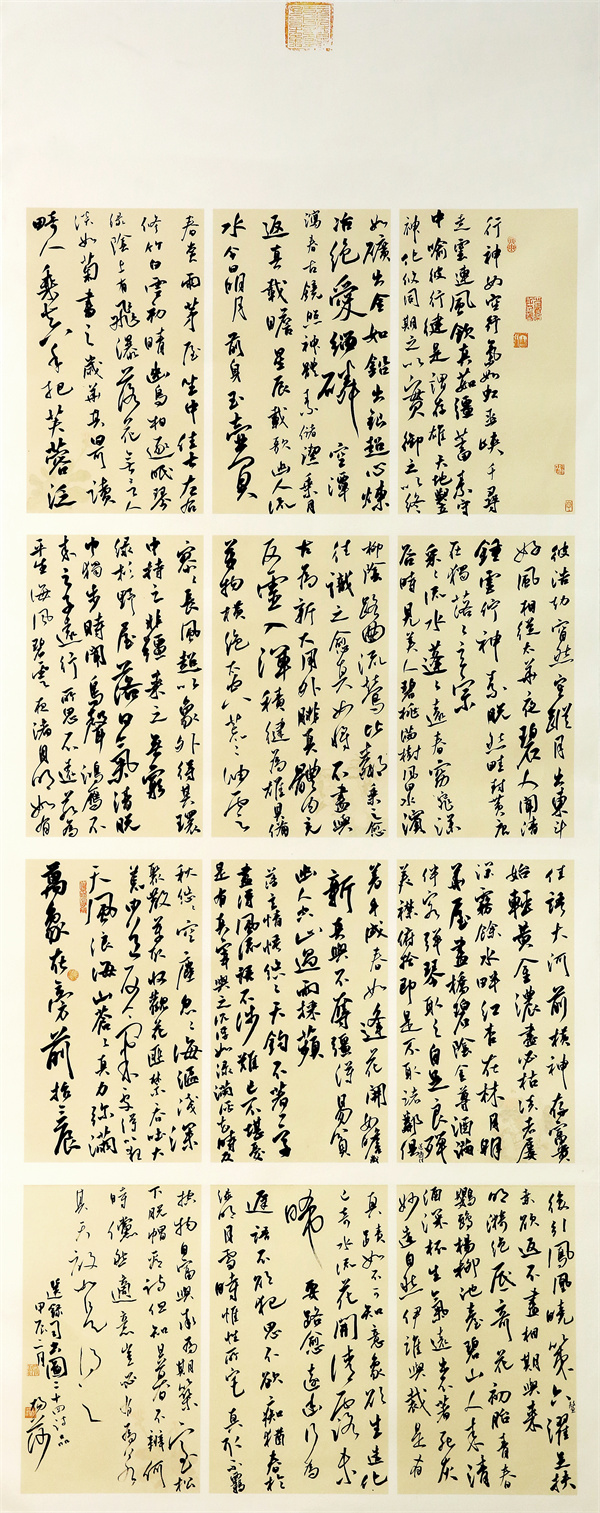 行神如空行氣如虹巫峽千尋
走雲連風飲真茹彊蓄素守
中喻彼行健是謂存雄天地與
神化攸同期之以實御之以終
如礦出金如鉛出銀超心煉
冶絕愛緇磷 空潭
瀉春古鏡照神體素儲潔乘月
返真載瞻星辰載歌幽人流
水今日明月前身玉壺買
春賞雨茅屋坐中佳士左右
修竹白雲初晴幽鳥相逐眠琴
綠陰上有飛瀑落花無言人
淡如菊書之歲華其曰可讀
畸人乘真手把芙蓉泛
彼浩劫窅然空蹤月出東斗
好風相從太華夜碧人聞清
鍾虛佇神素脫然畦封黃唐
在獨落落玄宗
采采流水蓬蓬遠春窈窕深
谷時見美人碧桃滿樹風日水濱
柳陰路曲流鶯比鄰乘之愈
往識之愈真如將不盡與
古為新大用外腓真體內充
反虛入渾積健為雄具備
萬物橫絕太空荒荒油雲
寥寥長風超以象外得其環
中持之非彊來之無窮
綠杉野屋落日氣清脫
巾獨步時聞鳥聲鴻雁不
來之子遠行所思不遠若為
平生海風碧雲夜渚月明如有
佳語大河前橫神存富貴
始輕黃金濃盡必枯淡者屢
深霧餘水畔紅杏在林月明
華屋畫橋碧陰金尊酒滿
伴客彈琴取之自足良殫
美襟俯拾即是不取諸鄰俱
著手成春如逢花開如瞻
新真與不奪彊得易貧
幽人空山過雨採蘋
薄言情悟悠悠天鈞不著一字
盡得風流語不涉難已不堪憂
是有真宰與之沉浮如淥滿酒花時反
秋悠悠空塵忽忽海漚淺深
聚散萬取一收觀花匪禁吞吐大
荒由道反氣處得以狂
天風浪浪海山蒼蒼真力彌滿
萬象在旁前招三辰
後引鳳凰曉策六鰲濯足扶
欲返不盡相期與來
明漪絕底奇花初胎青春
鸚鵡楊柳池臺碧山人來清
酒深杯生氣遠出不著死灰
妙造自然伊誰與裁是有
真跡如不可知意象欲生造化
已奇水流花開清露未
晞 要路愈遠幽行為
遲語不欲犯思不欲癡猶春於
綠明月雪時惟性所宅真取不羈
控物自富與率為期築室松
下脫帽看詩但知旦暮不辨何
時倘然適意豈必有為若
其天放如是得之
選錄司空圖二十四詩品
甲辰二月